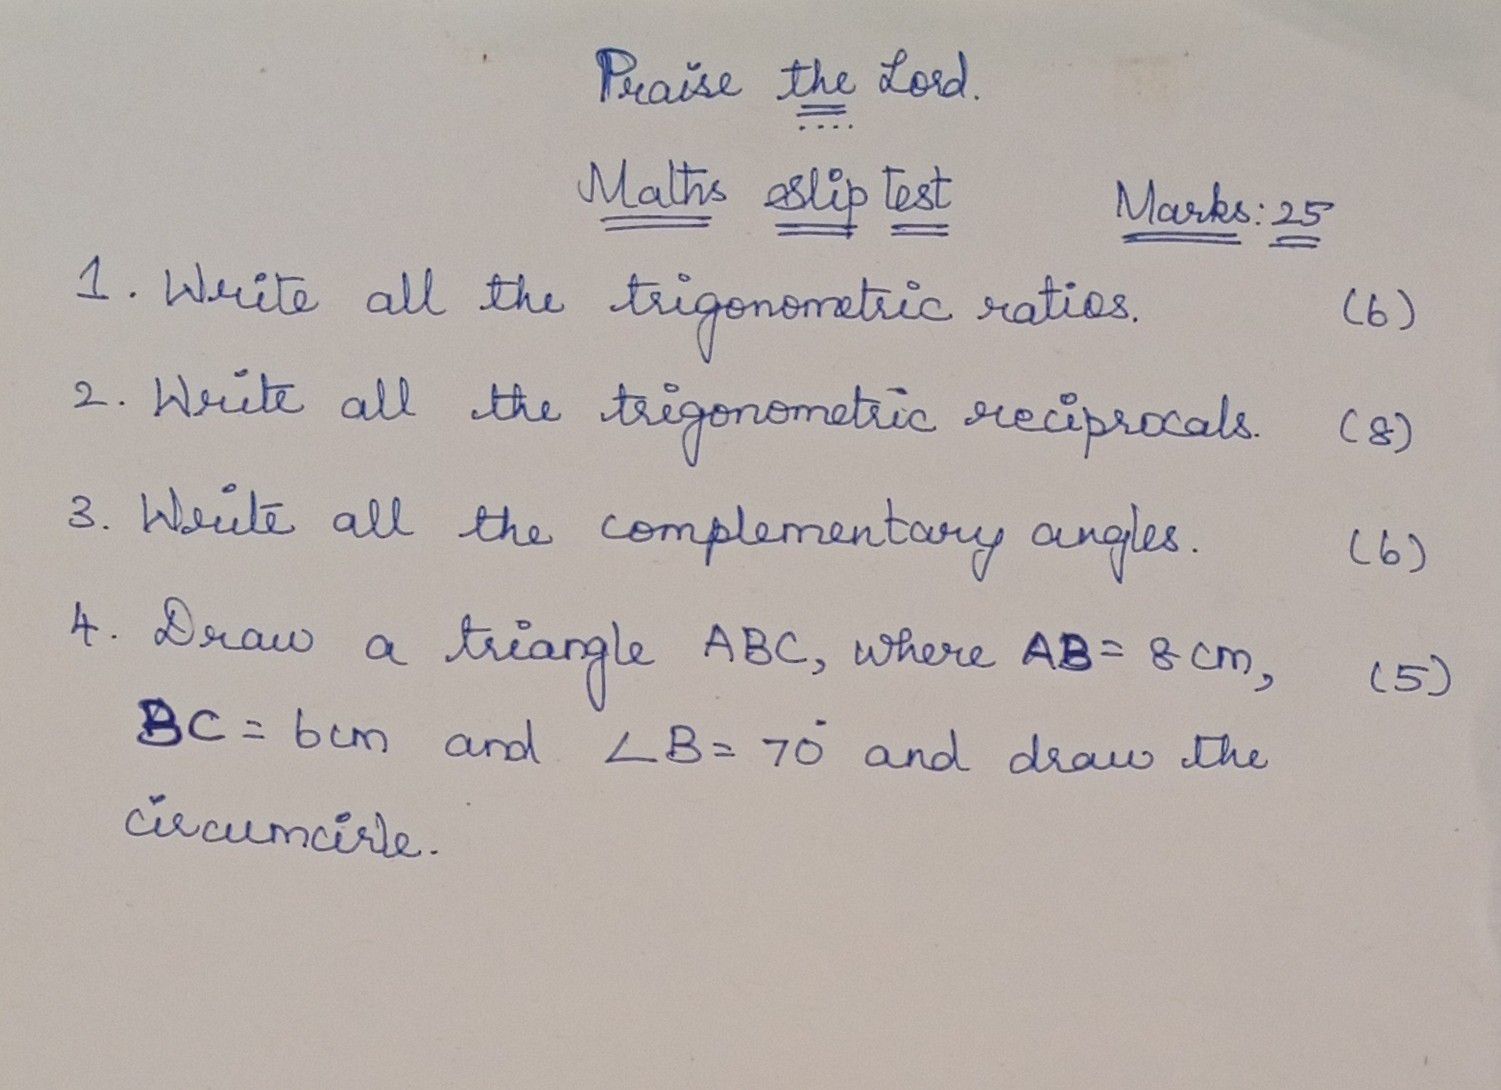 Praise the Lord.
Maths Slip Test Marks: 25
1. Write all the trigonometric ratios. (6)
2. Write all the trigonometric reciprocals. (8)
3. Write all the complementary angles. (6)
4. Draw a triangle ABC, where AB = 8cm, (5)
BC = 6cm and ∠B = 70° and draw the
circumcirle.